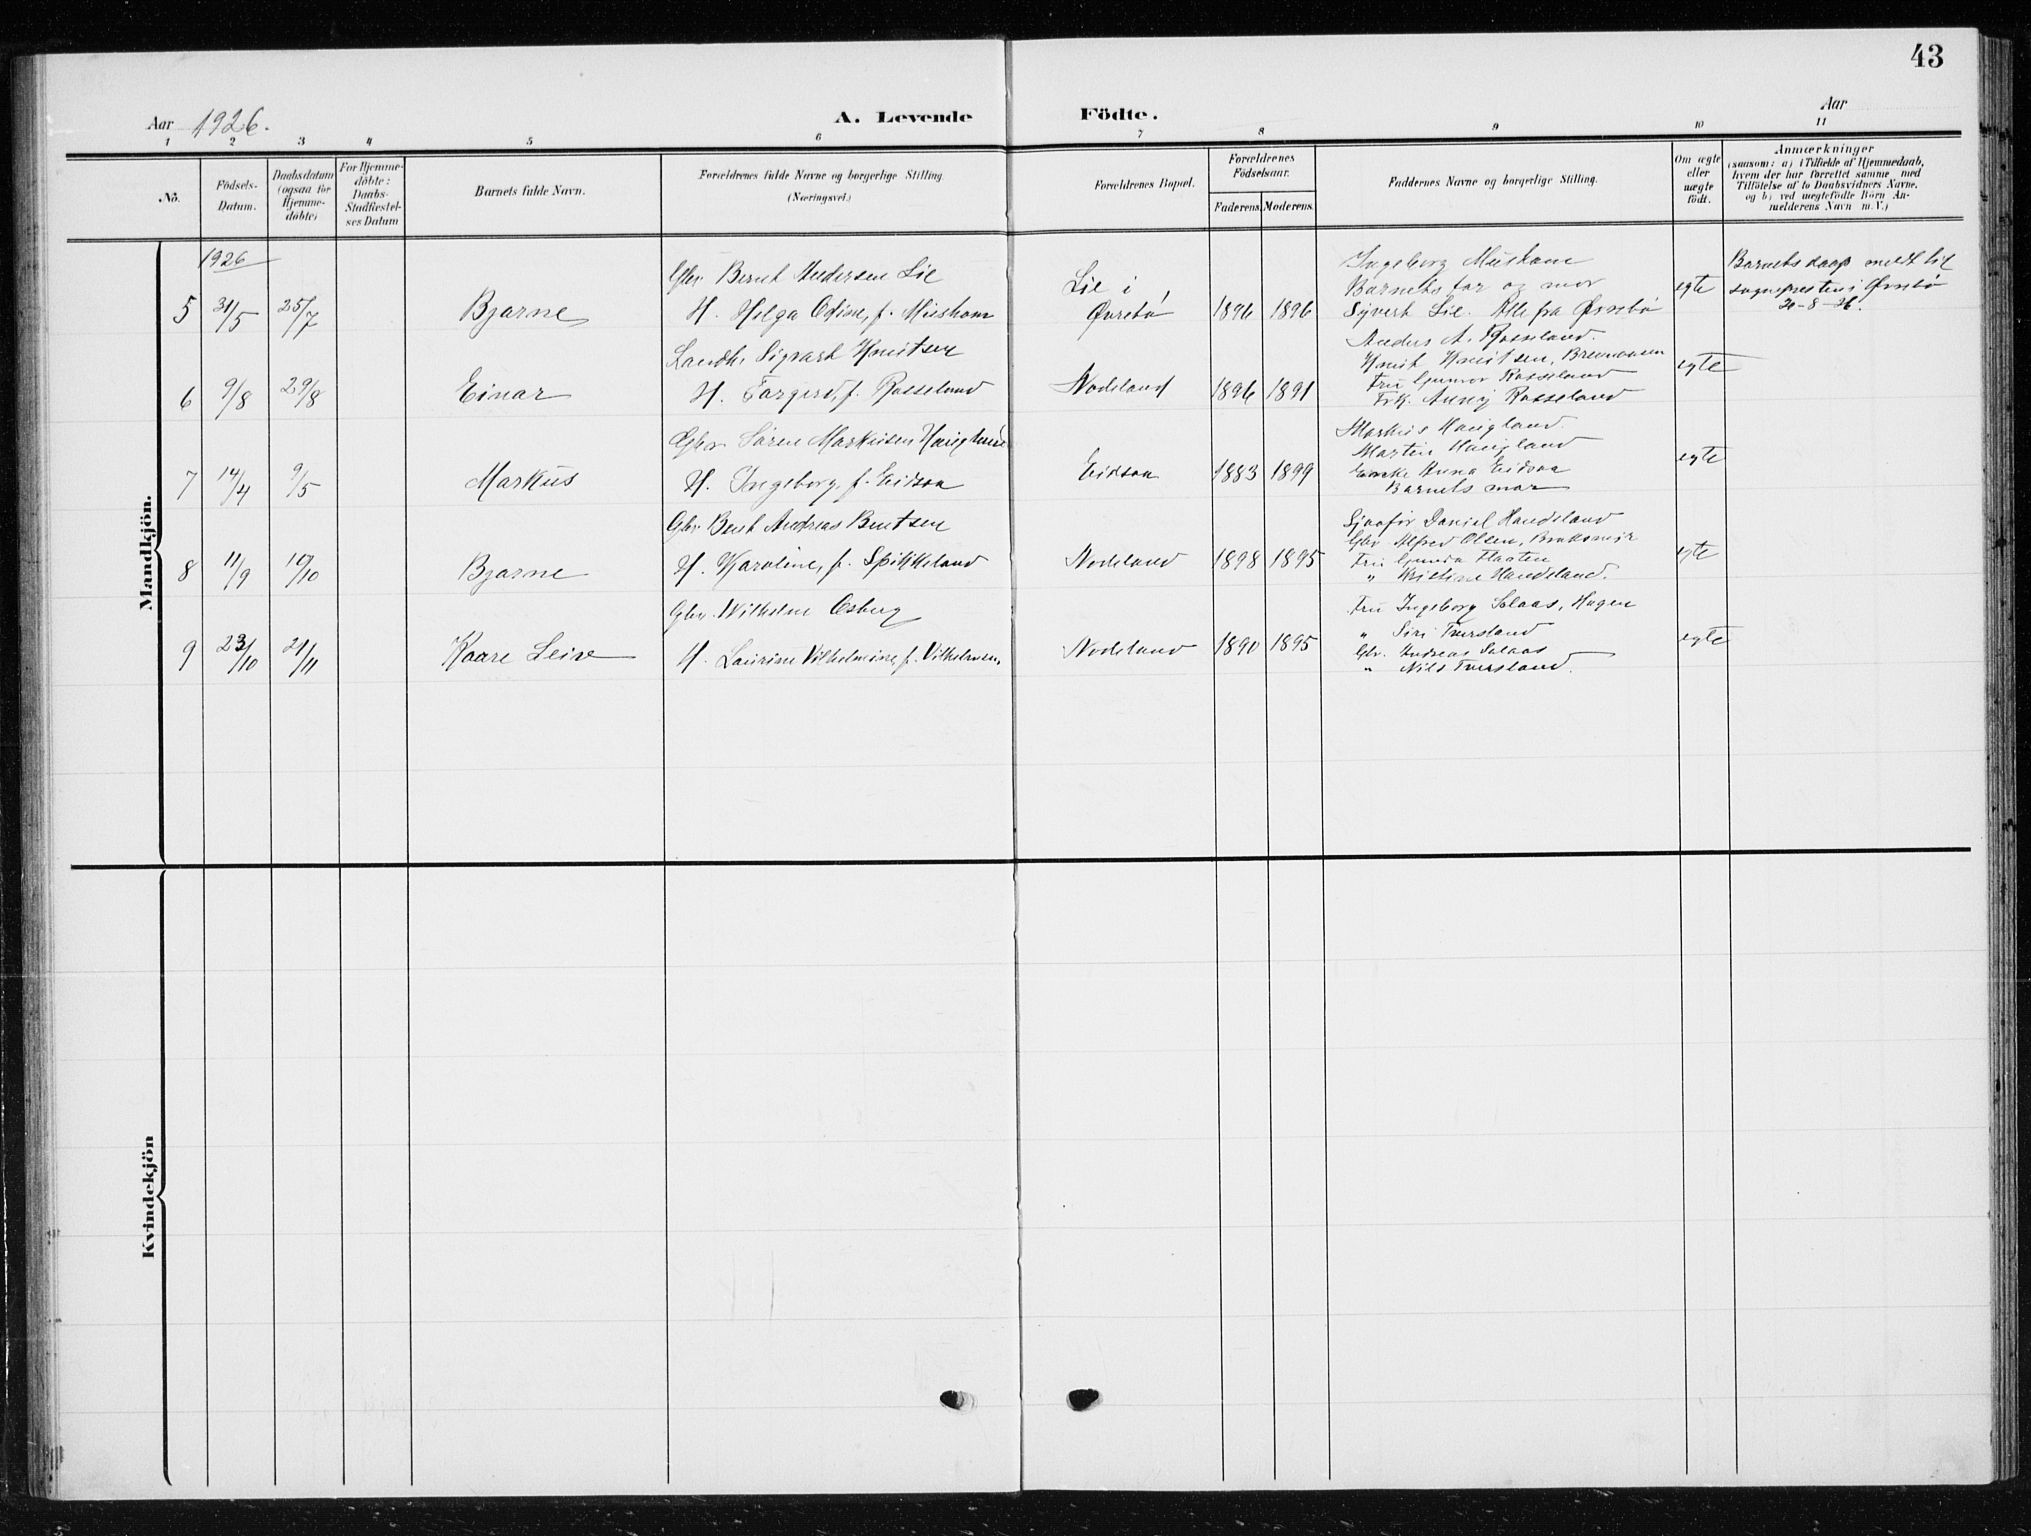 43
Aar 1926.
A. Levende Födte.
Aar
1 2 3 4 5 6 7 8 9 10 11
No.
Födsels-
Datum.
Daabsdatum
(ogsaa for
Hjemme-
döbte)
For Hjemme-
döbte:
Daabs-
Stadfæstel-
ses Datum
Barnets fulde Navn.
Forældrenes fulde Navne og borgerlige Stilling.
(Næringsvei.)
Forældrenes Bopæl.
Forældrenes
Födselsaar.
Faderens. Moderens.
Faddernes Navne og borgerlige Stilling.
Om ægte
eller
uægte
födt.
Anmærkninger
(saasom: a) i Tilfælde af Hjemmedaab,
hvem der har forrettet samme med
Tilföielse af to Daabsvidners Navne,
og b) ved uægtefödte Börn An-
melderens Navn m. V.)
Mandkjön.
1926
5 31/5 25/7 Bjarne
Gbr. Bernt Andersen Lie
H. Helga Odine, f.
Lie i
Øvrebø
1896 1896
Ingeborg
Barnets far og mor
Syvert Lie. Alle fra Øvrebø
egte
Barnets daap meldt til
sognepresten i Øvrebø
20-8-26.
6 9/8 29/8 Einar
Landh. Sigvart Knutsen
H. Torgerd, f. Rosseland
Nodeland
1896 1891
Anders A. Rosseland.
Knut Knutsen,
Fru Gunvor Rosseland
Frk. Anny Rosseland
egte
7 14/4 9/5 Markus
Gbr. Søren Markusen Haugland
H. Ingeborg, f. Eidsaa
Eidsaa
1883 1899
Markus Haugland.
Martin Haugland
Enke Anna Eidsaa
Barnets mor
egte
8 11/9 10/10 Bjarne
Gbr. Bent Andreas Bentsen
H. Karoline, f. Spikkeland
Nodeland
1898 1895
Daniel Haudeland
Gbr. Alfred Olsen,
Fru Gunda Flaaten
" Kristine Haudeland.
egte
9 23/10 21/11 Kaare Leive
Gbr. Wilhelm Osberg
H. Laurine Vilhelmine, f. Vilhelmsen,
Nodeland
1890 1895
Fru Ingeborg Solaas, Hagen
" Siri Tversland
Gbr. Andreas Solaas
" Nils Tversland.
egte
Kvindekjön